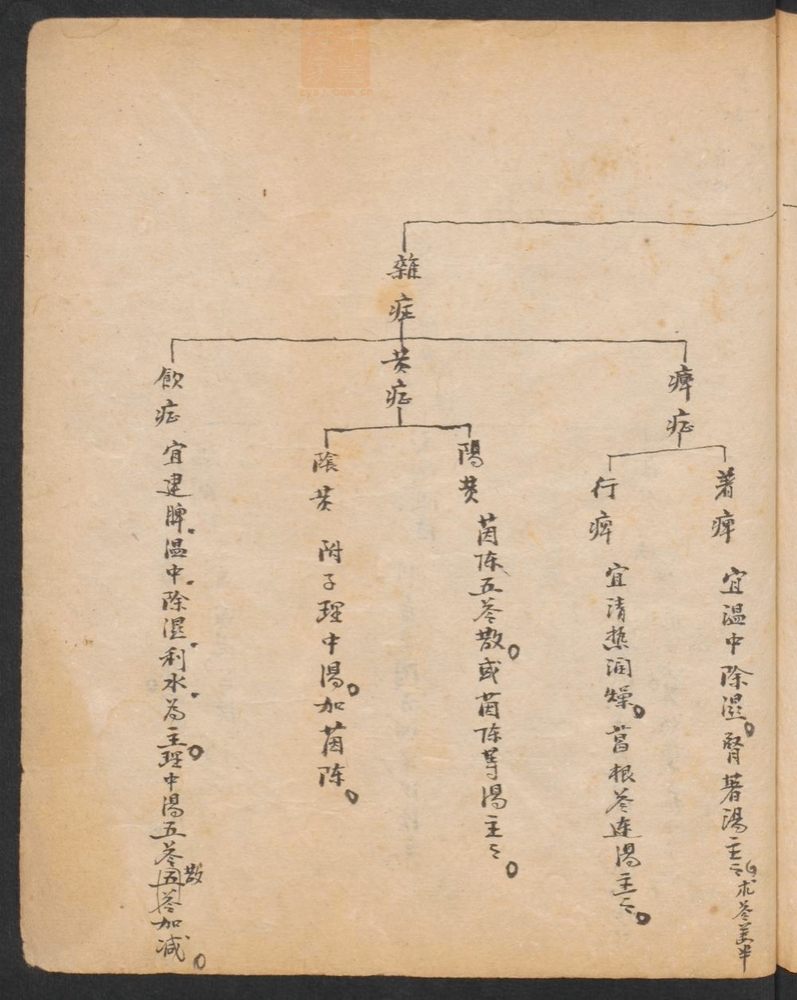 雜症
痺症
著痺 宜温中除濕。腎著湯主之。
行痺 宜清热润燥。葛根芩連湯主之。
黄症
陽黄 茵陈五苓散。或茵陈等湯主之。
陰黄 附子理中湯。加茵陈。
飲症 宜建脾、温中、除濕、利水、為主。理中湯五苓散加减。